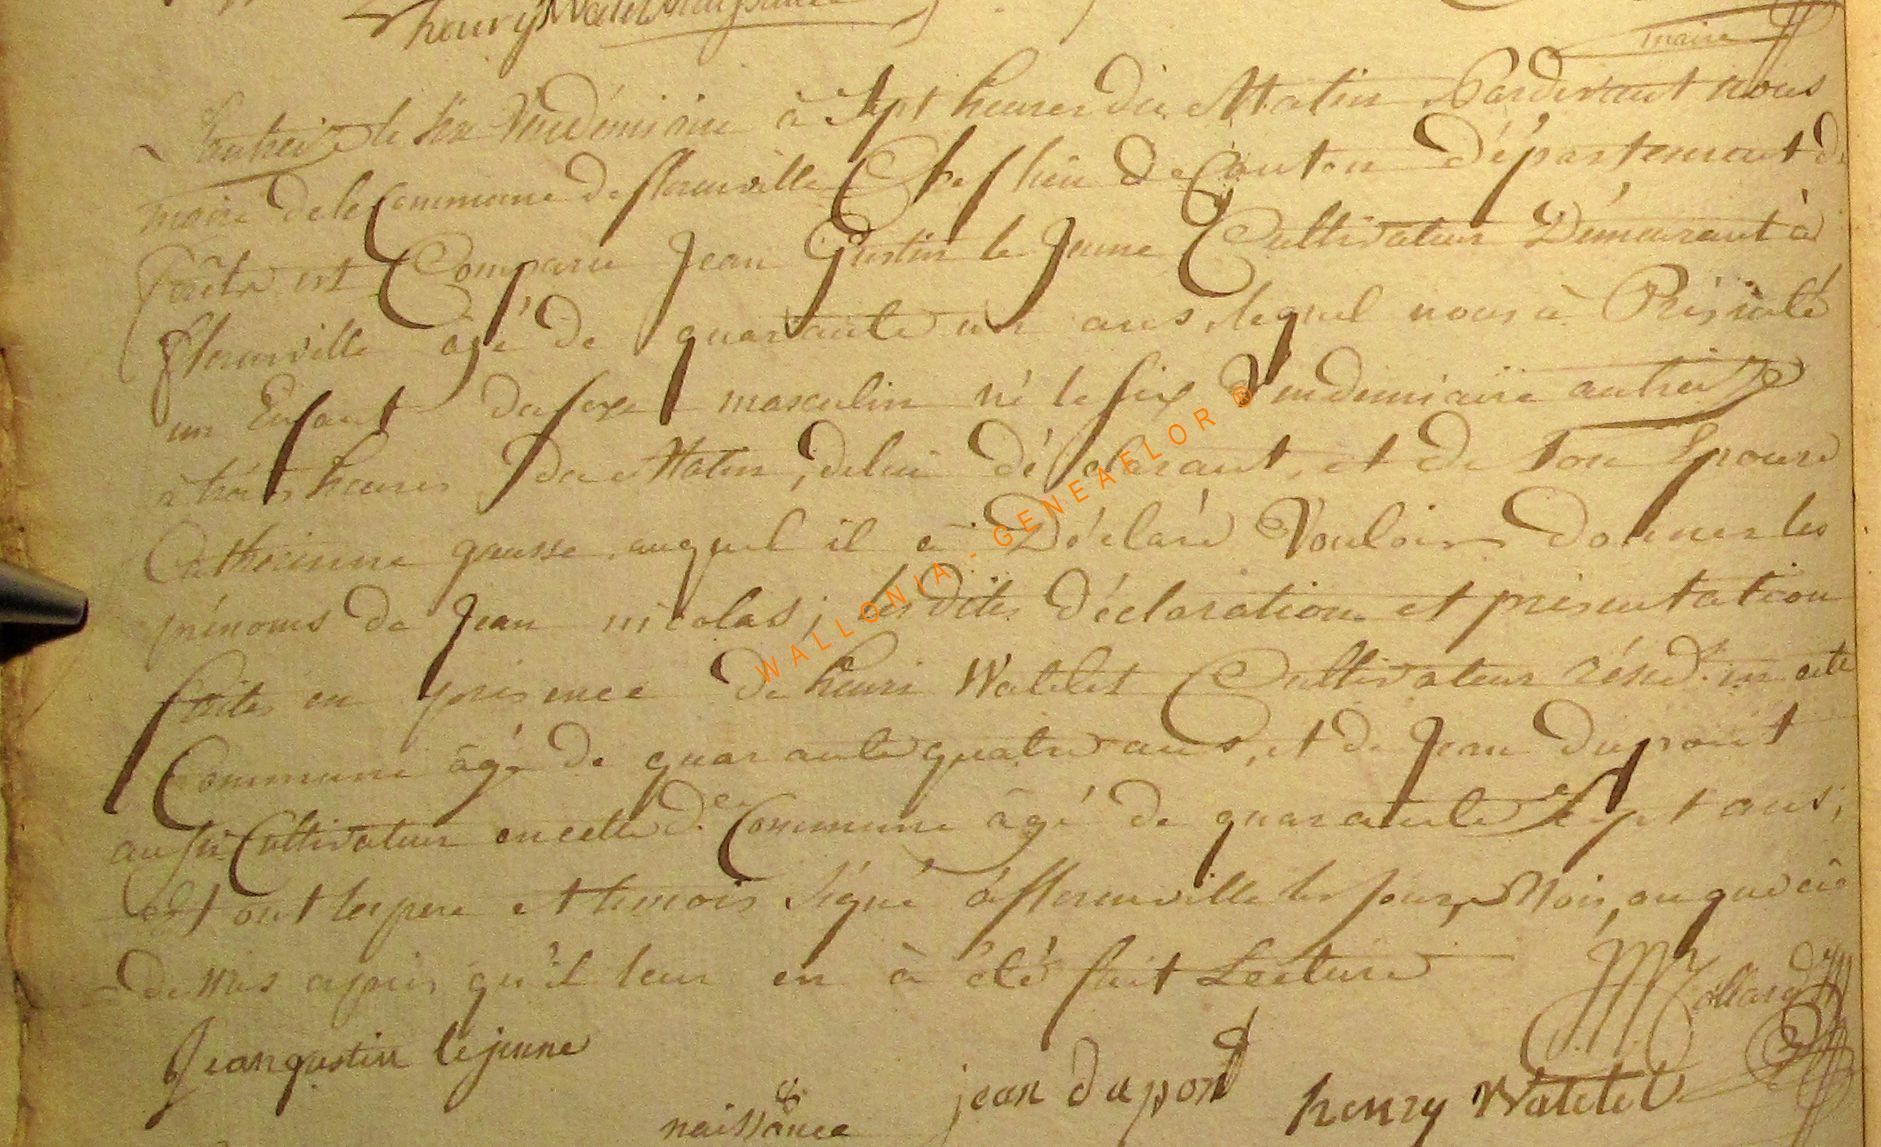 henry Watelet
maire
L'an treize le six Vendémiaire à Sept heures du Matin Pardevant nous
maire de la Commune de florenville Chef lieu de Canton département de
forêts est Comparu Jean Gustin le Jeune Cultivateur Démeurant à
florenville âgé de quarante un ans, lequel nous à Présenté
un Enfant du sexe masculin né le six Vendemiaire an treize
à trois heures du Matin, de lui déclarant, et de son Epouse
Catherinne gausse, auquel il à Déclaré Vouloir donner les
prénoms de Jean nicolas; les dites déclaration et présentation
faites en présence de henri Watelet Cultivateur résid. en cette
Commune âgé de quarante quatre ans, et de Jean Dupont
aussi Cultivateur en cette d.e Commune âgé de quarante sept ans;
et ont les pere et temois signé à florenville les jour, Mois, an que ci
dessus après qu'il leur en à été fait Lecture
Jean gustin le jeune
jean dupond
henry Watelet
naissance
WALLONIA - GENEAFLOR ®